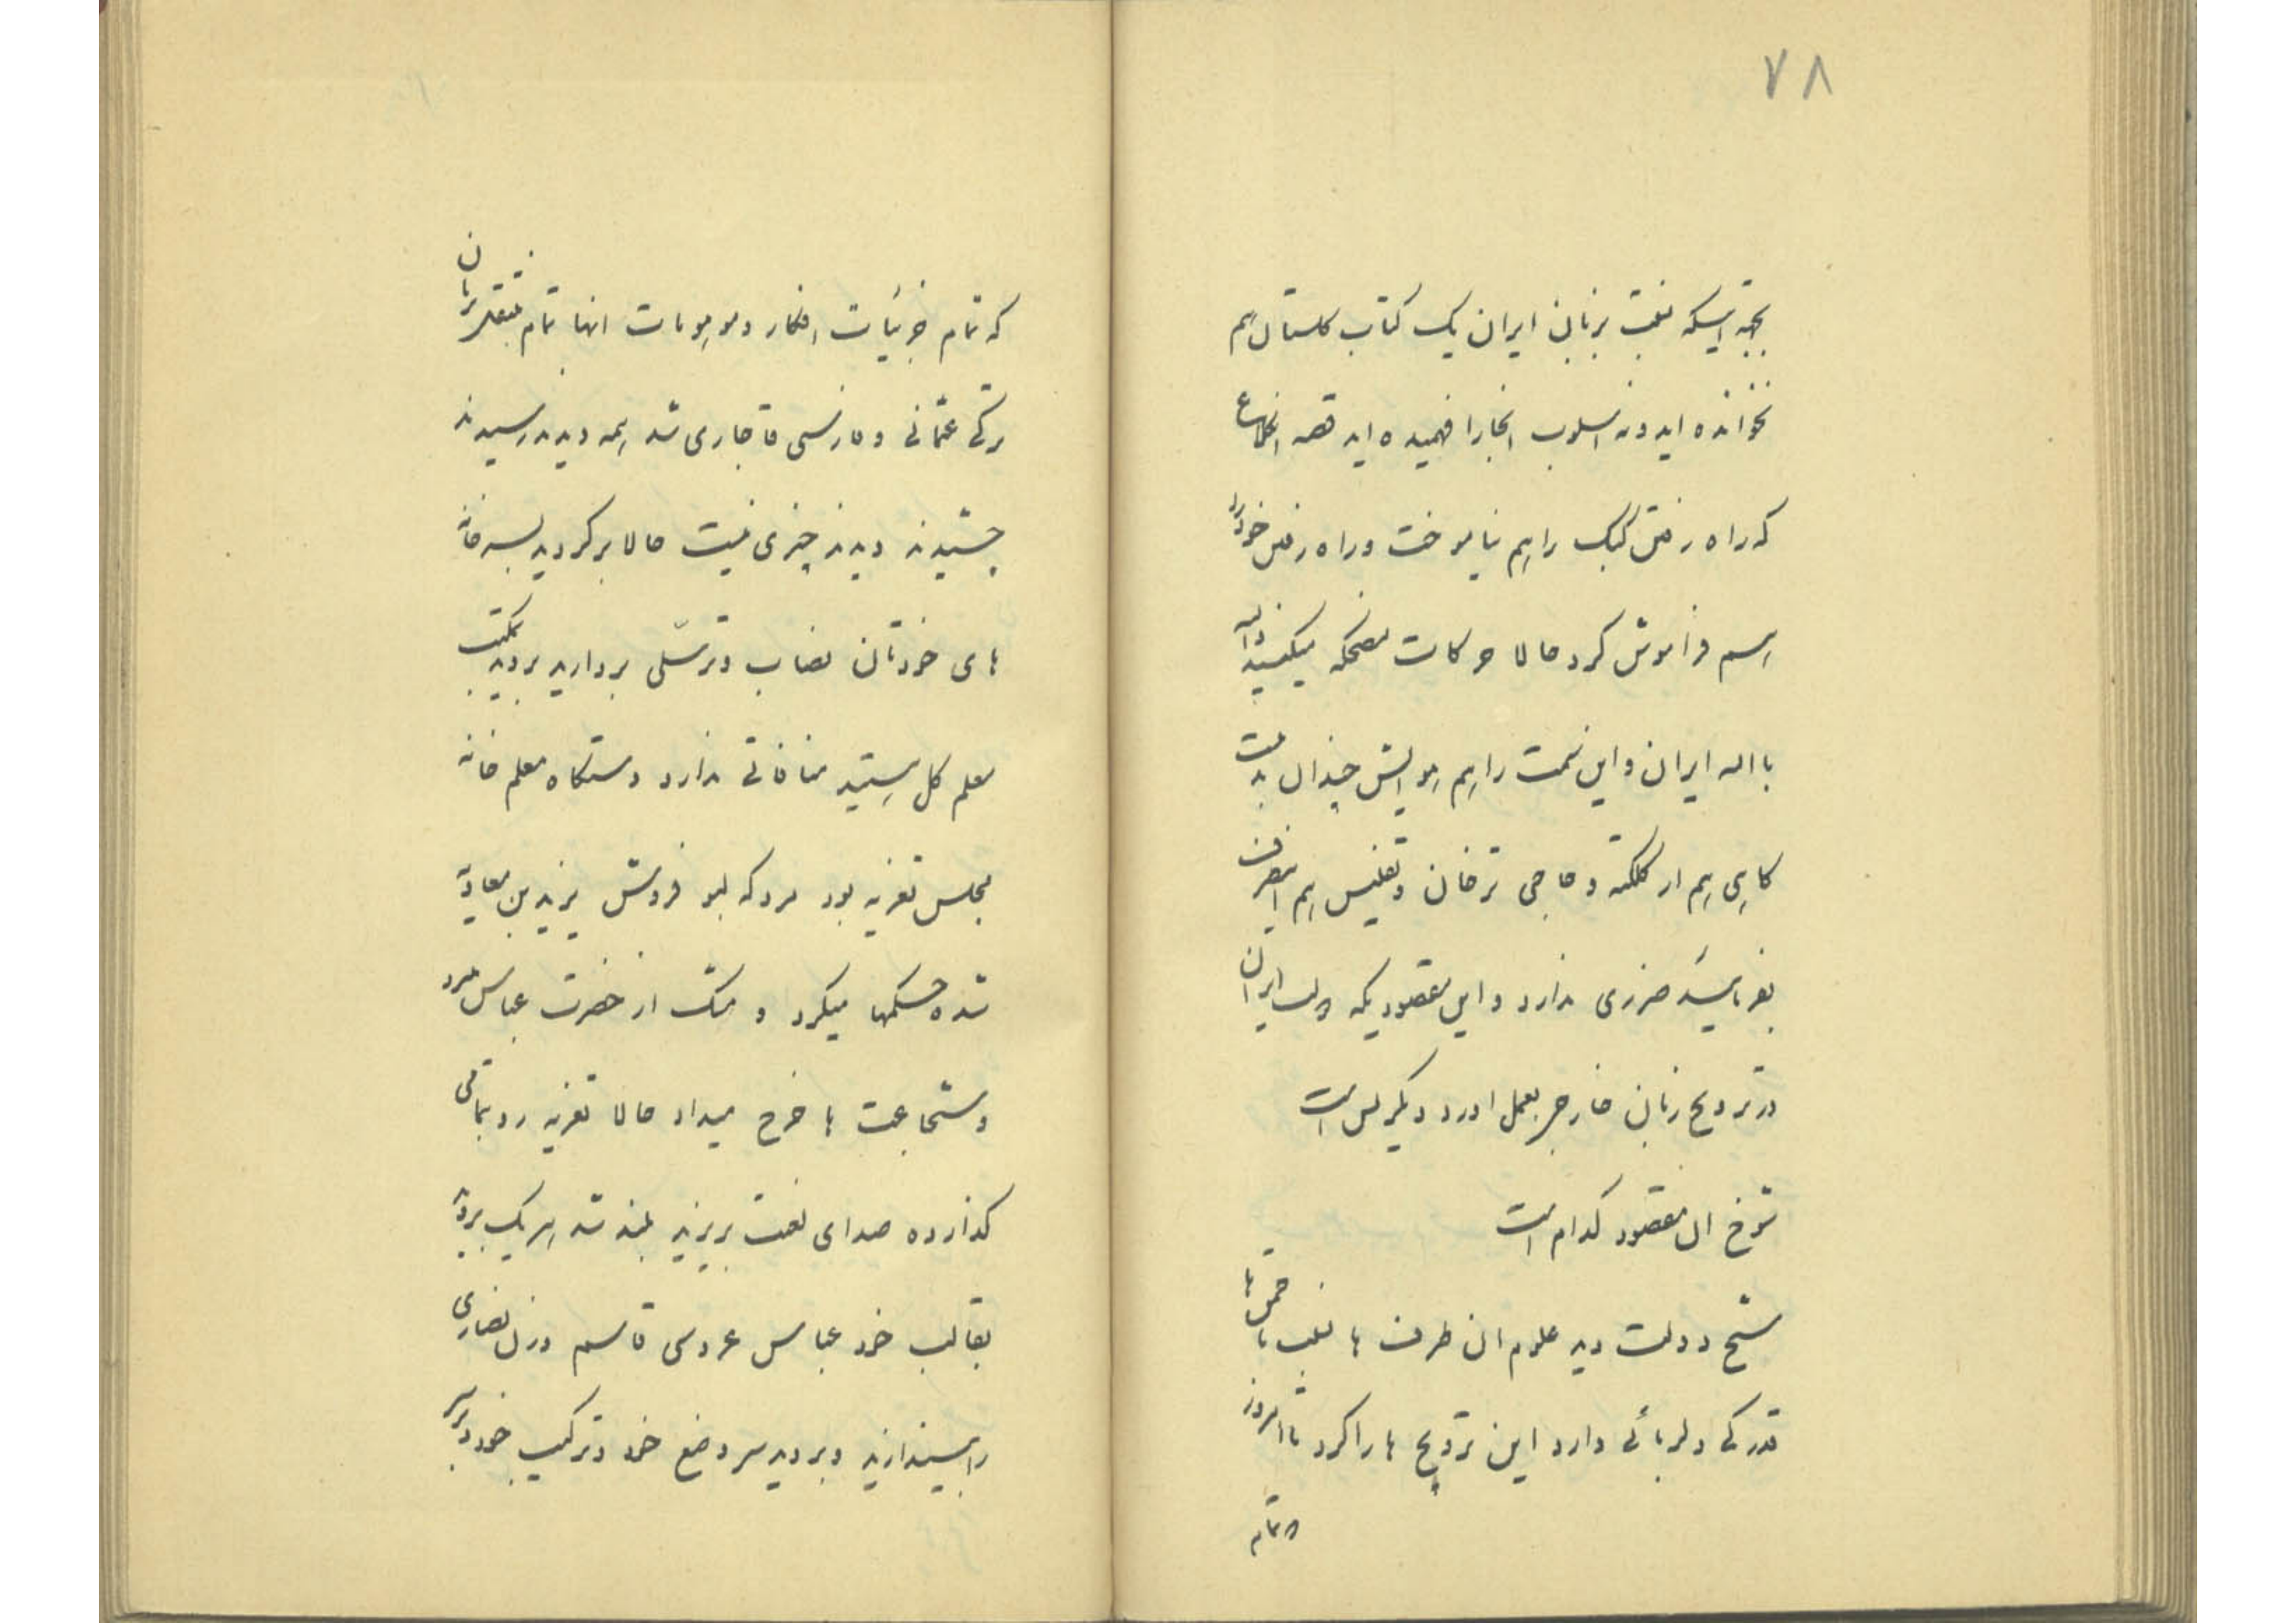 ۷۸
بجهة اینکه نعت بزبان ایران یک کتاب کلستان هم
نخوانده اید و نه اسلوب انجا را فهمیده اید قصه انکلاغ
که راه رفتن کبک را هم نیاموخت و راه رفتن خود را
هم فراموش کرد حالا حرکات مضحکه میکنید
با اله ایران و این سمت را هم هوایش چندان بد نیست
کاهی هم از کلکته و حاجی ترخان و تفلیس هم
بفرمائید ضرری ندارد و این مقصودیکه دولت ایران
در ترویج زبان خارجه بعمل اورد دیگر بس است
شوخ ان مقصود کدام است
شیخ دولت دید علوم ان طرف ها
قدرکی دلربائی دارد این ترویج ها را کرد تا امروز
که تمام
که تمام جزئیات افکار و موهومات انها تمام بزبان
ترکی عثمانی و فارسی قاجاری شد همه دیدند رسیدند
چشیدند دیدند چیزی نیست حالا برکردید بسر خانه
های خودتان نصاب و ترسّلی بردارید بروید بمکتب
معلم کل هستید منافاتی ندارد دستکاه معلم خانه
مجلس تعزیه بود مردکه لبو فروش یزید بن معاویه
شده حکمها میکرد و مشک از حضرت عباس میبرد
و شجاعت ها خرج میداد حالا تعزیه رو بتمامی
کذارده صدای لعنت بر یزید بلند شد هر یک بروید
بقالب خود عباس عروسی قاسم و زن نصاری
را بیندازید و بروید سر وضع خود و ترکیب خود